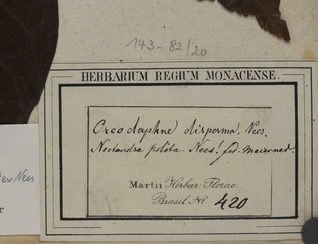 143-82/20
HERBARIUM REGIUM MONACENSE.
Oreodaphne disperma. Nees.
Nectandra polita. Nees! fid. Meissner!
Nees
Martii Herbar. Florae
Brasil. No 420
r